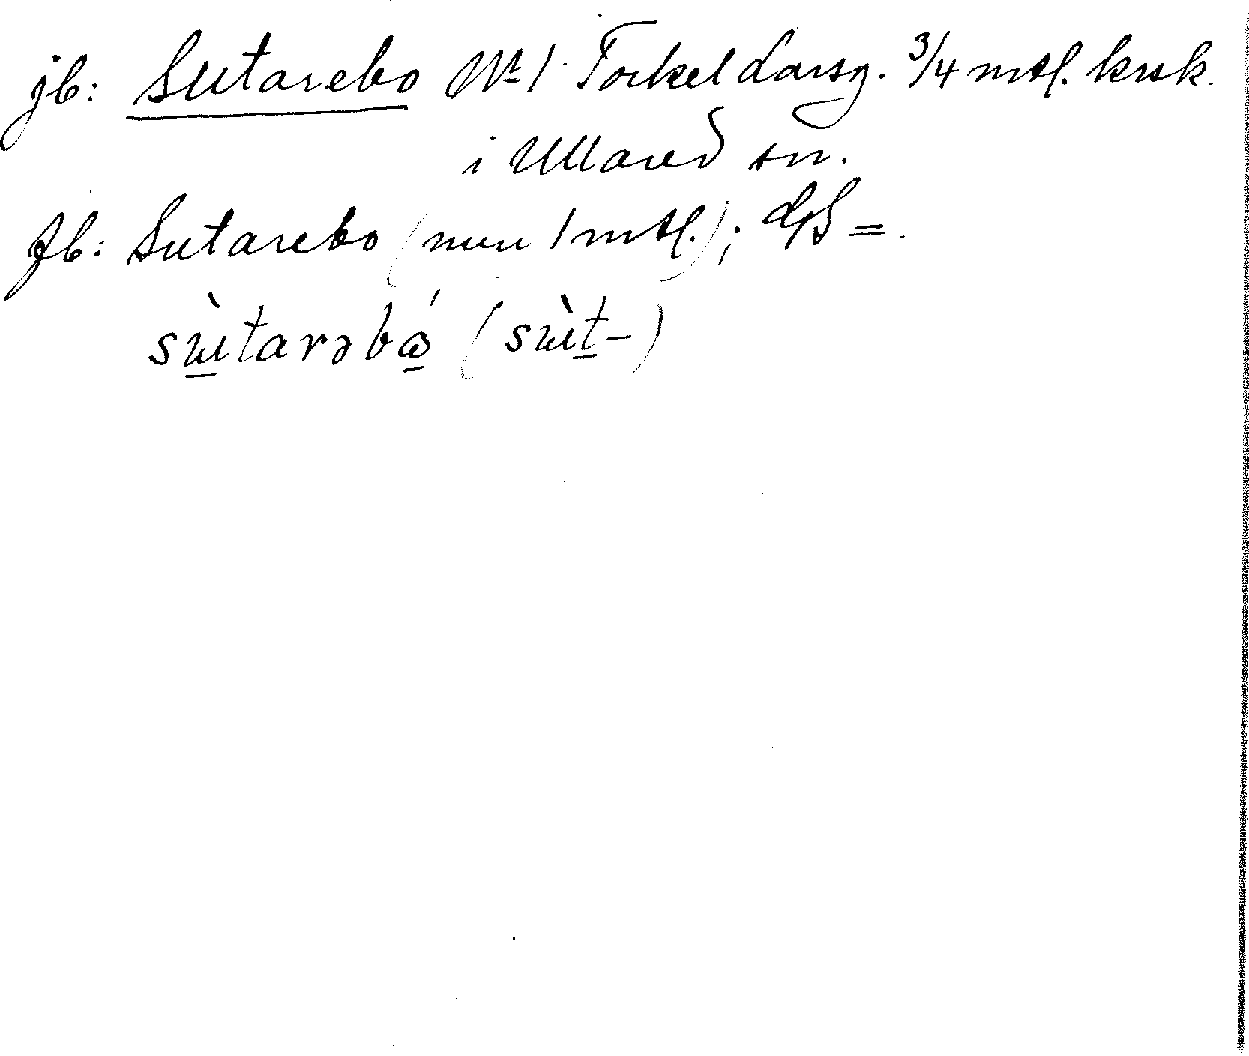 jb: Sutarebo No 1 Torkel Larsg. 3/4 mtl. krsk.
i Ullared sn.
Jb: Sutarebo (nu 1 mtl.); =.
su̱̇tarəbɷ̱́ (su̇t̠-)